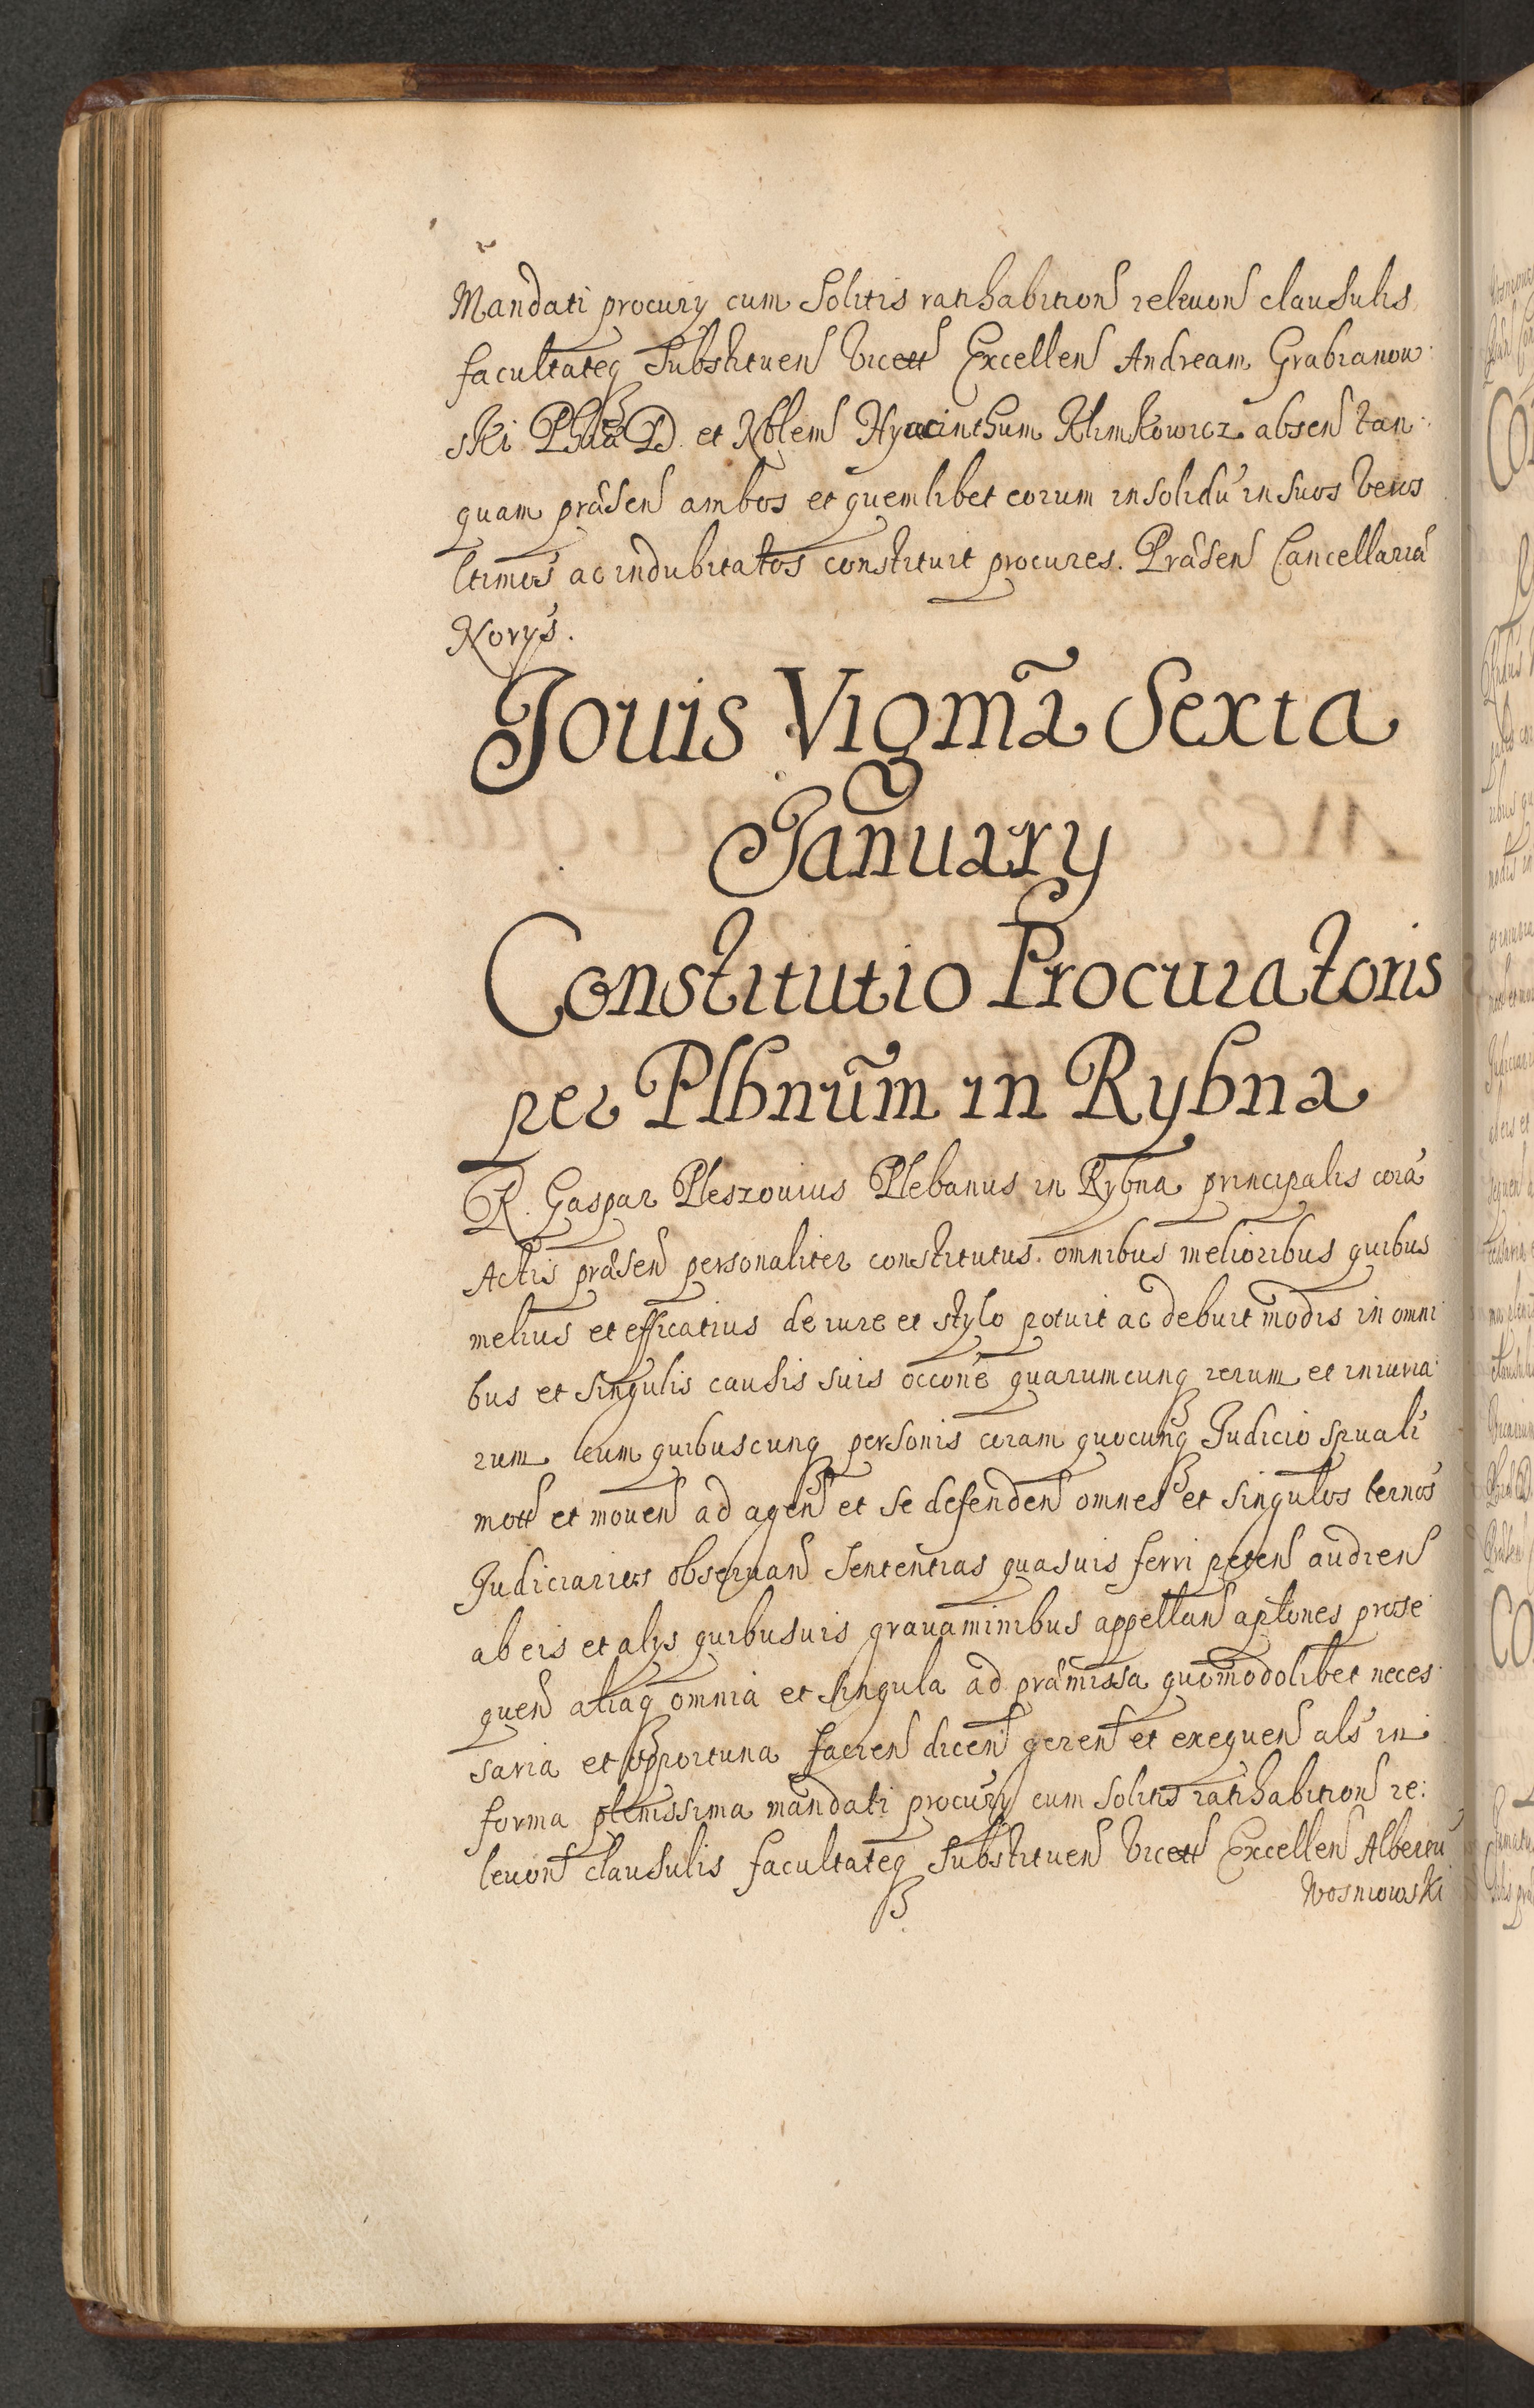 Mandati procurÿ cum Solitis ratihabitionſ releuonſ clauſulis
facultateq Subſtituenſ Vicett Excellenſ Andream Grabianow:
ski Phiae D. et Nblem Hyacinthum Klimkowicz absenſ tan:
quam präsenſ ambos et quemlibet eorum insolidú in suos Veros
ltimos ac indubitatos constituit procures. Präsenſ Cancellariæ
Norys.
Jouis Vigmã Sexta
Januarÿ
Constitutio Procuratoris
per Plbnũm in Rybna
R. Gaspar Pleszouius Plebanus in Rybna principalis corã
Actis präsenſ personaliter constitutus. omnibus melioribus quibus
melius et efficatius de iure et stylo potuit ac debuit modis in omni
bus et singulis causis suis occone quarumcunq rerum et iniuria
rum cum quibuscunq personis coram quocunq Judicio spuali
mott et mouenſ ad agenſ et se defendenſ omnes et singulos ternos
Judiciarios obseruanſ Sententias quasuis ferri petenſ audienſ
ab eis et alÿs quibusuis grauaminibus appellanſ aplones prose
quenſ aliaq omnia et singula ad prämissa quomodolibet neces
saria et opportuna facienſ dicenſ gerenſ et exequenſ als in
forma plenissima mandati procurÿ cum solitis ratihabitionſ re:
leuonſ clausulis facultateq Substituenſ Vicett Excellenſ Albertũ
Wosniowski